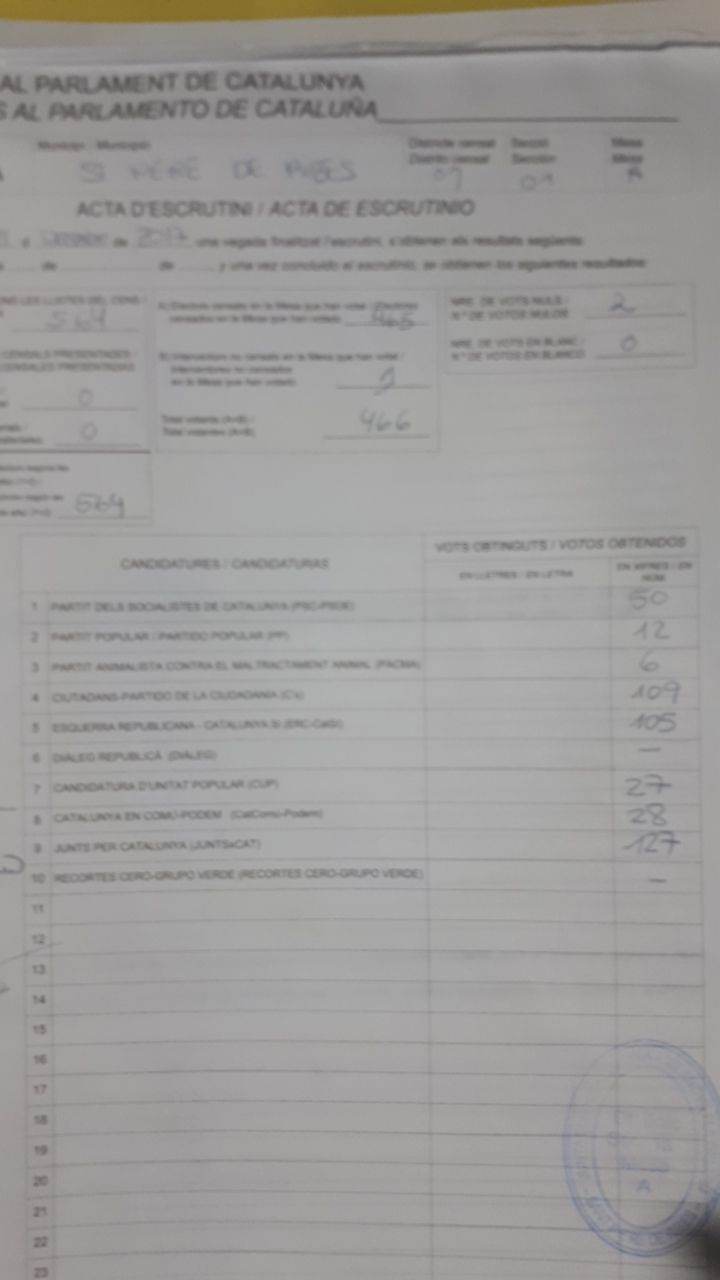 AL PARLAMENT DE CATALUNYA
S AL PARLAMENTO DE CATALUÑA
Municipi / Municipio
Districte censal Secció Mesa
Distrito censal Sección Mesa
ST PERE DE RIBES
01 A
ACTA D'ESCRUTINI / ACTA DE ESCRUTINIO
de 2017 una vegada finalitzat l'escrutini, s'obtenen els resultats següents:
de de y una vez concluido el escrutinio, se obtienen los siguientes resultados:
564
A) Electors censats en la Mesa que han votat / Electores
censados en la Mesa que han votado 465
NRE. DE VOTS NULS /
N.º DE VOTOS NULOS 2
NRE. DE VOTS EN BLANC /
N.º DE VOTOS EN BLANCO 0
B) Interventors no censats en la Mesa que han votat /
Interventores no censados
en la Mesa que han votado 1
0
Total votants (A+B) /
Total votantes (A+B) 466
0
564
CANDIDATURES / CANDIDATURAS
VOTS OBTINGUTS / VOTOS OBTENIDOS
EN LLETRES / EN LETRA
EN XIFRES / EN NÚM.
1 PARTIT DELS SOCIALISTES DE CATALUNYA (PSC-PSOE) 50
2 PARTIT POPULAR / PARTIDO POPULAR (PP) 12
3 PARTIT ANIMALISTA CONTRA EL MALTRACTAMENT ANIMAL (PACMA) 6
4 CIUTADANS-PARTIDO DE LA CIUDADANÍA (C's) 109
5 ESQUERRA REPUBLICANA - CATALUNYA SÍ (ERC-CatSí) 105
6 DIÀLEG REPUBLICÀ (DIÀLEG) —
7 CANDIDATURA D'UNITAT POPULAR (CUP) 27
8 CATALUNYA EN COMÚ-PODEM (CatComú-Podem) 28
9 JUNTS PER CATALUNYA (JUNTSxCAT) 127
10 RECORTES CERO-GRUPO VERDE (RECORTES CERO-GRUPO VERDE) —
11
12
13
14
15
16
17
18
19
20
21
22
23
A